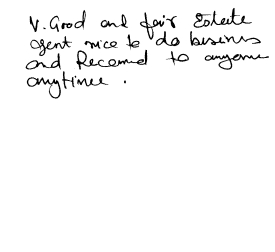 V. Good and fair Estate
agent nice to do business
and Recomend to anyone
anytime.